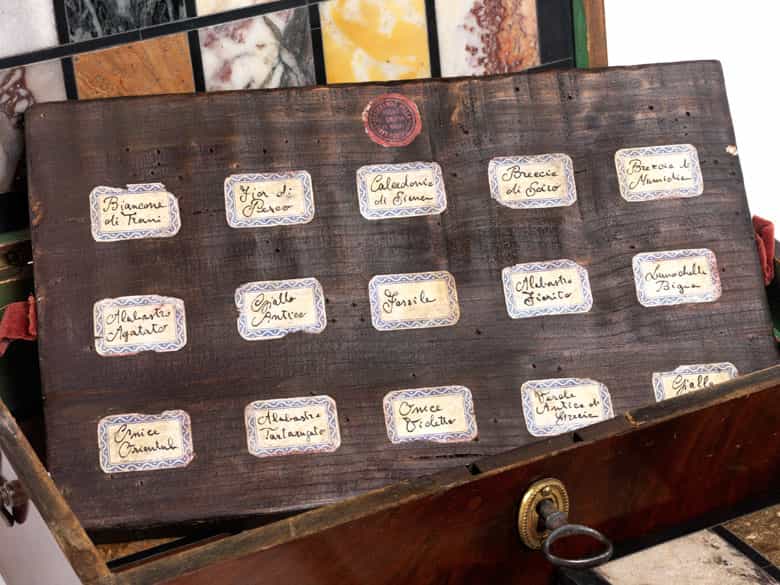 Biancone
di Trani
Fior di
Pesco
Calcedonio
di Siena
Breccia
di Sciro
Breccia di
Numidia
Alabastro
Agatato
Giallo
Antico
Fossile
Alabastro
Fiorito
Lumachella
Bigua
Onice
Oriental
Alabastro
Tartarugato
Onice
Violetto
Verde
Antico di
Grecia
Giallo